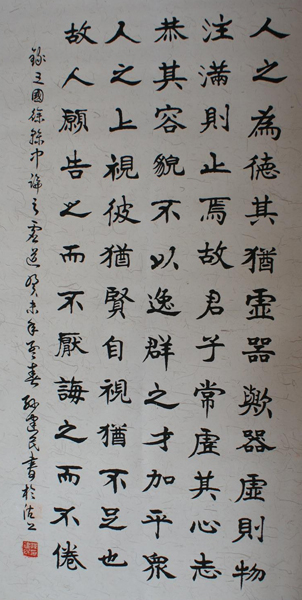 人之為德其猶虛器歟器虛則物
注滿則止焉故君子常虛其心志
恭其容貌不以逸群之才加乎眾
人之上視彼猶賢自視猶不足也
故人願告之而不厭誨之而不倦
錄三國徐幹中論之虛道癸未年孟春孫建民書於沽上